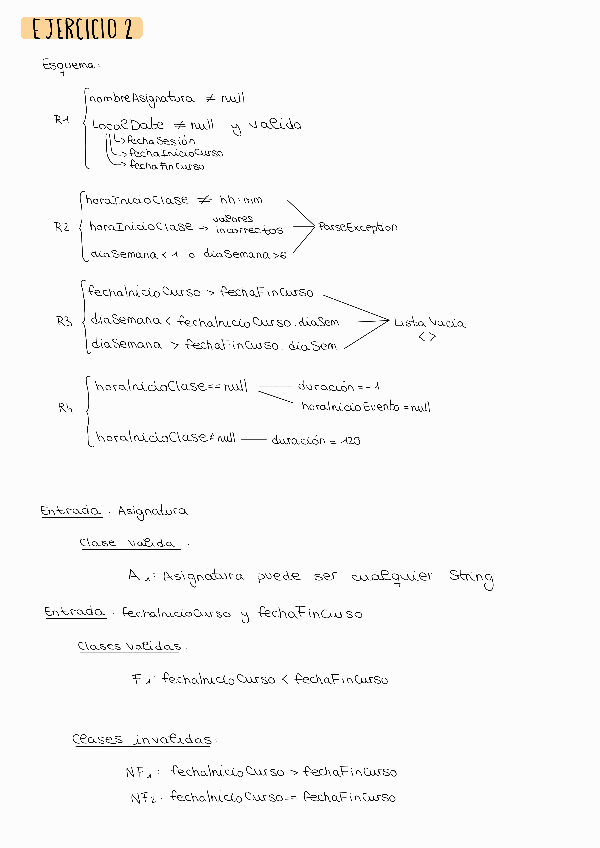 EJERCICIO 2
Esquema:
R1
nombreAsignatura ≠ null
LocalDate ≠ null y valido
↳ fechaSesión
↳ fechaInicioCurso
↳ fechaFinCurso
R2
horaInicioClase ≠ hh:mm
horaInicioClase → valores incorrectos
diaSemana < 1 o diaSemana > 6
ParseException
R3
fechaInicioCurso > fechaFinCurso
diaSemana < fechaInicioCurso.diaSem
diaSemana > fechaFinCurso.diaSem
Lista Vacia
< >
R4
horaInicioClase == null — duración = -1
horaInicioEvento = null
horaInicioClase ≠ null — duración = 120
Entrada: Asignatura
Clase valida:
A1: Asignatura puede ser cualquier String
Entrada: fechaInicioCurso y fechaFinCurso
Clases validas:
F1: fechaInicioCurso < fechaFinCurso
Clases invalidas:
NF1: fechaInicioCurso > fechaFinCurso
NF2: fechaInicioCurso == fechaFinCurso